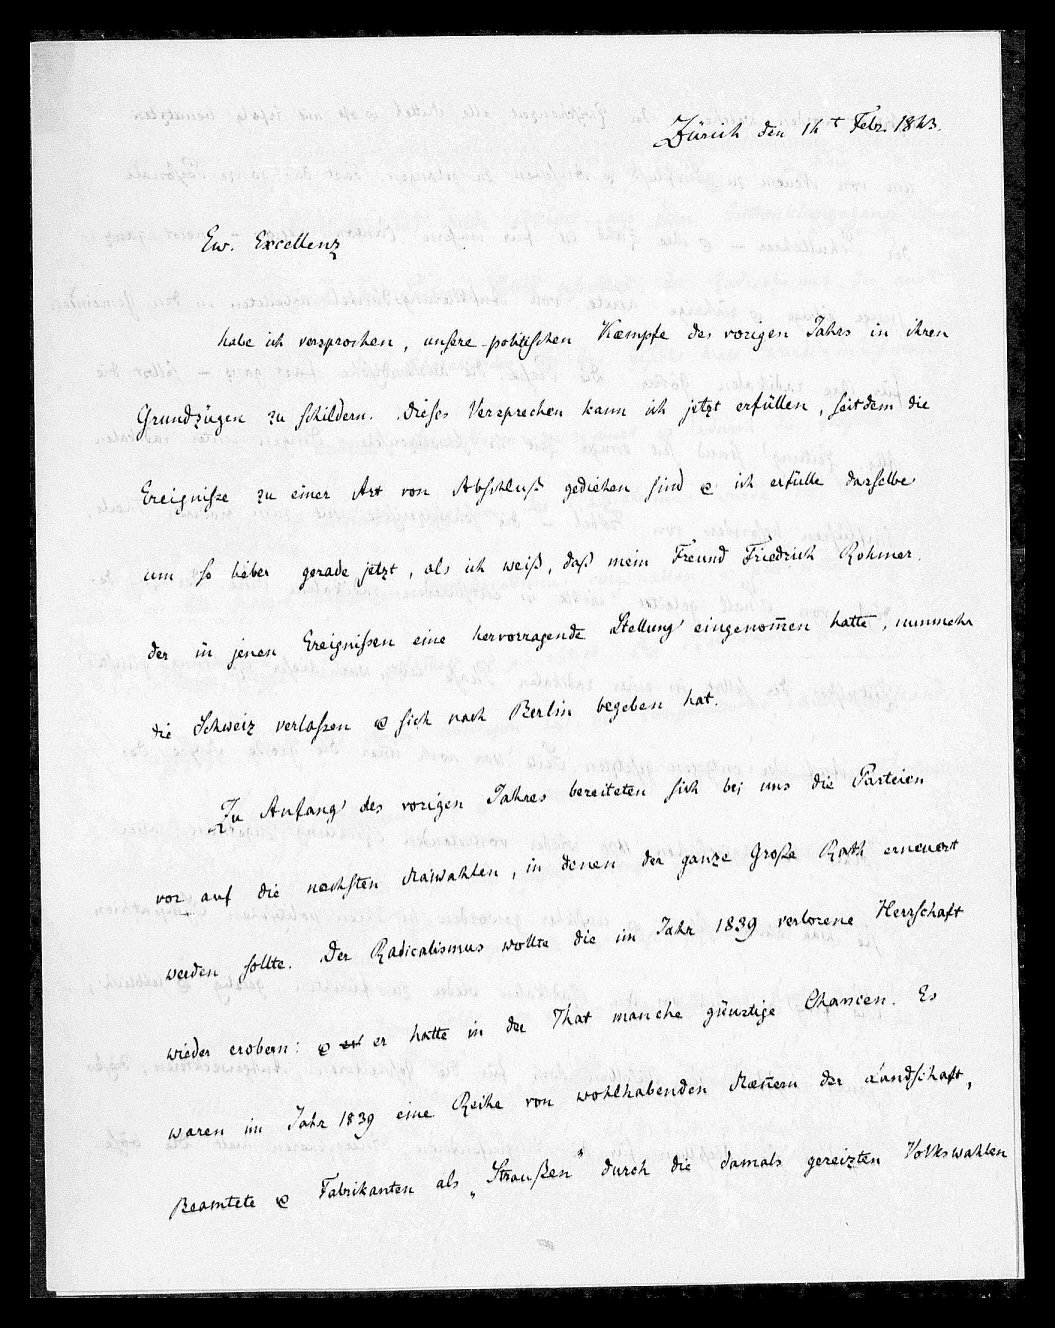 Zürich den 14t Febr. 1843.
Ew. Excellenz
habe ich versprochen, unsere politischen Kæmpfe des vorigen Jahrs in ihren
Grundzügen zu schildern. Dieses Versprechen kann ich jetzt erfüllen, seitdem die
Ereigniße zu einer Art von Abschluß gediehen sind & ich erfülle dasselbe
um so lieber gerade jetzt, als ich weiß, daß mein Freund Friedrich Rohmer.
der in jenen Ereignißen eine hervorragende Stellung eingenom̅en hatte, nunmehr
die Schweiz verlaßen & sich nach Berlin begeben hat.
Zu Anfang des vorigen Jahres bereiteten sich bei uns die Parteien
vor auf die nächsten Maiwahlen, in denen der ganze Große Rath erneuert
werden sollte. Der Radicalismus wollte die im Jahr 1839 verlorene Herrschaft
wieder erobern: & er er hatte in der That manche günstige Chancen. Es
waren im Jahr 1839 eine Reihe von wohlhabenden Mæn̅ern der Landschaft,
Beamtete & Fabrikanten als „Straußen" durch die damals gereizten Volkswahlen